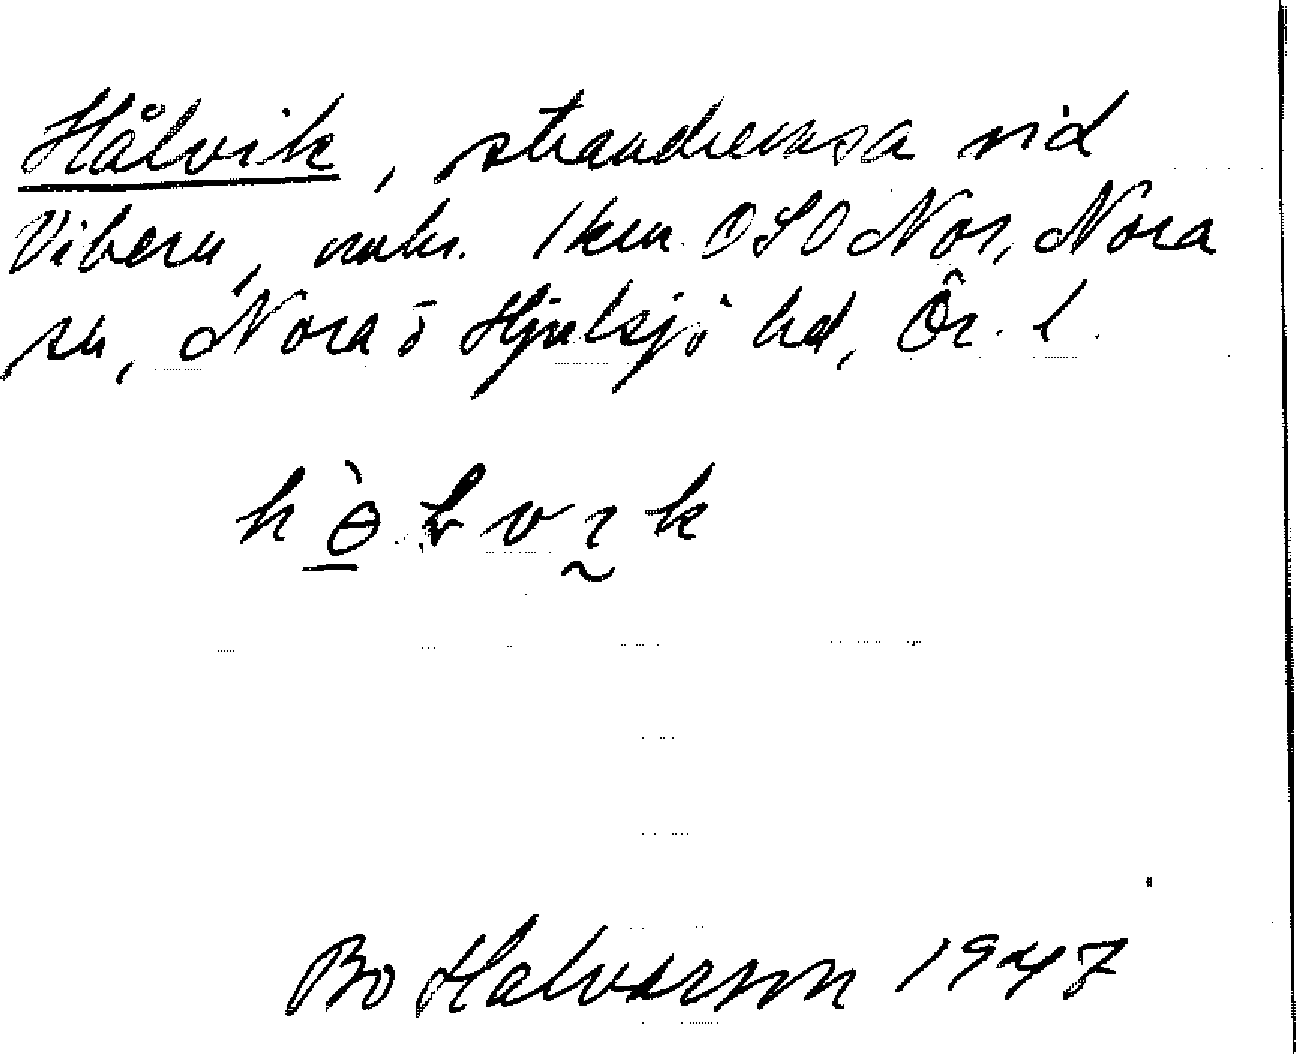 Hålvik, strandremsa vid
Vibern, omkr. 1 km OSO Nor, Nora
sn, Nora o Hjulsjö hd, Ör. l.
Bo Halvarson 1947